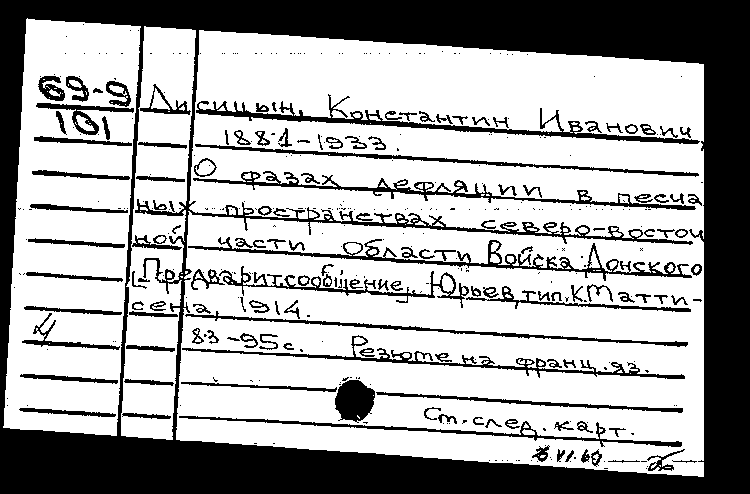 69-9
101
Лисицын, Константин Иванович,
1881-1933.
О фазах дефляции в песча
ных пространствах северо-восточ
ной части области Войска Донского
[Предварит.сообщение. Юрьев, тип. К.Матти-
сена, 1914.
83-95с. Резюме на франц.яз.
Ст. след. карт.
VI.69